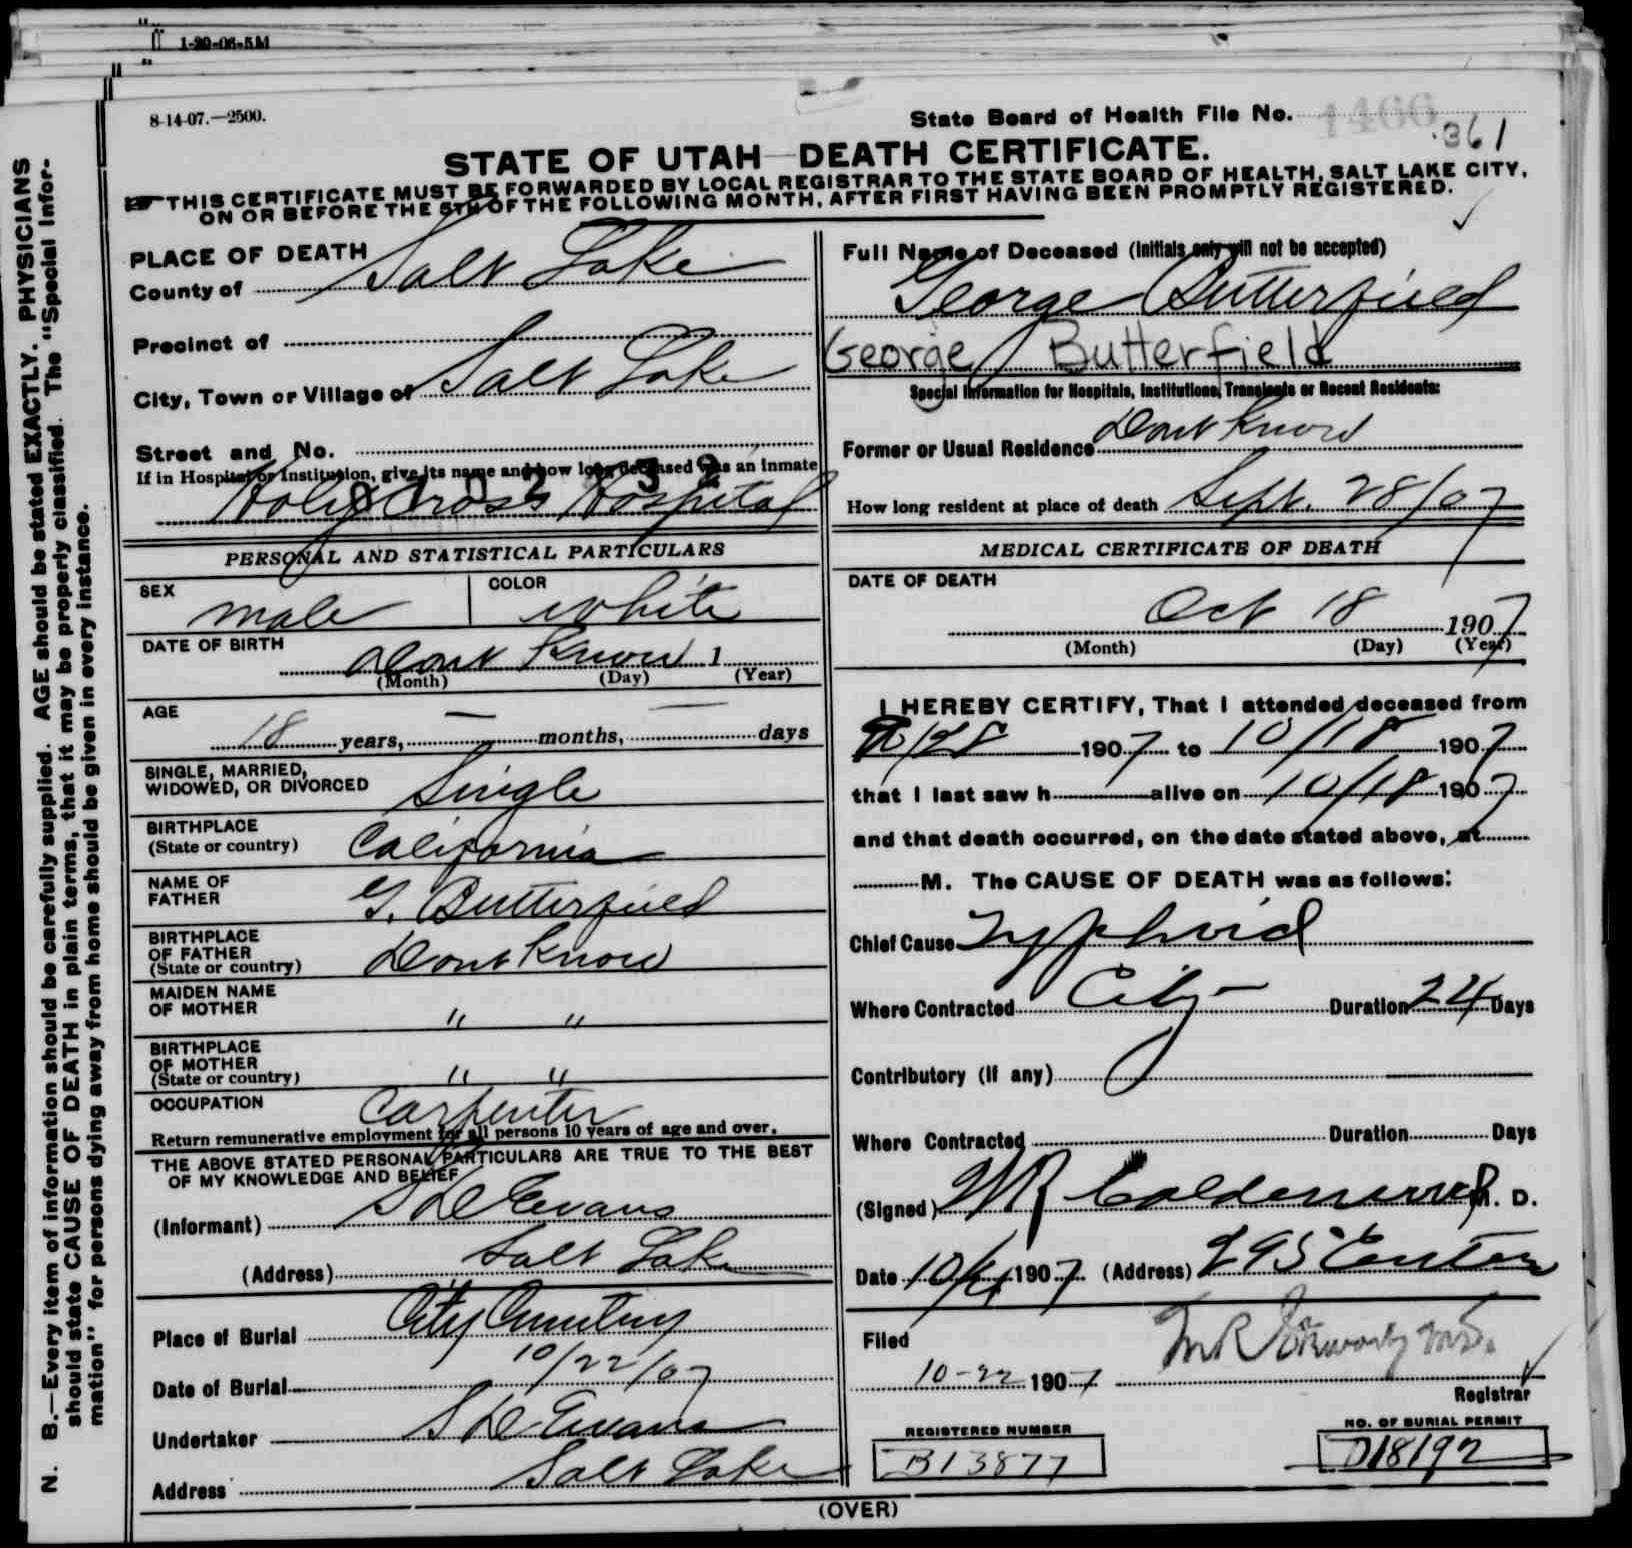 1-20-06-5M
8-14-07.—2500.
State Board of Health File No. 1466
361
STATE OF UTAH—DEATH CERTIFICATE.
THIS CERTIFICATE MUST BE FORWARDED BY LOCAL REGISTRAR TO THE STATE BOARD OF HEALTH, SALT LAKE CITY,
ON OR BEFORE THE 5TH OF THE FOLLOWING MONTH, AFTER FIRST HAVING BEEN PROMPTLY REGISTERED.
N. B.—Every item of information should be carefully supplied. AGE should be stated EXACTLY. PHYSICIANS
should state CAUSE OF DEATH in plain terms, that it may be properly classified. The "Special Infor-
mation" for persons dying away from home should be given in every instance.
PLACE OF DEATH
County of Salt Lake
Precinct of
City, Town or Village of Salt Lake
Street and No.
If in Hospital or Institution, give its name and how long deceased was an Inmate
Holy Cross Hospital
PERSONAL AND STATISTICAL PARTICULARS
SEX male
COLOR white
DATE OF BIRTH
Dont Know 1
(Month) (Day) (Year)
AGE
18 years, — months, — days
SINGLE, MARRIED,
WIDOWED, OR DIVORCED Single
BIRTHPLACE
(State or country) California
NAME OF
FATHER G. Butterfield
BIRTHPLACE
OF FATHER
(State or country) Dont Know
MAIDEN NAME
OF MOTHER " "
BIRTHPLACE
OF MOTHER
(State or country) " "
OCCUPATION Carpenter
Return remunerative employment for all persons 10 years of age and over.
THE ABOVE STATED PERSONAL PARTICULARS ARE TRUE TO THE BEST
OF MY KNOWLEDGE AND BELIEF
(Informant) S D Evans
(Address) Salt Lake
Place of Burial City Cemetery
Date of Burial 10/22/07
Undertaker S D Evans
Address Salt Lake
Full Name of Deceased (Initials only will not be accepted)
George Butterfield
George Butterfield
Special Information for Hospitals, Institutions, Transients or Recent Residents:
Former or Usual Residence Dont Know
How long resident at place of death Sept. 28/07
MEDICAL CERTIFICATE OF DEATH
DATE OF DEATH
Oct 18 1907
(Month) (Day) (Year)
I HEREBY CERTIFY, That I attended deceased from
9/28 1907 to 10/18 1907
that I last saw h alive on 10/18 1907
and that death occurred, on the date stated above, at
M. The CAUSE OF DEATH was as follows:
Chief Cause Typhoid
Where Contracted City Duration 24 Days
Contributory (if any)
Where Contracted Duration Days
(Signed) M. D.
Date 1907 (Address)
Filed
10-22 1907
Registrar
REGISTERED NUMBER
B13877
NO. OF BURIAL PERMIT
D18192
(OVER)